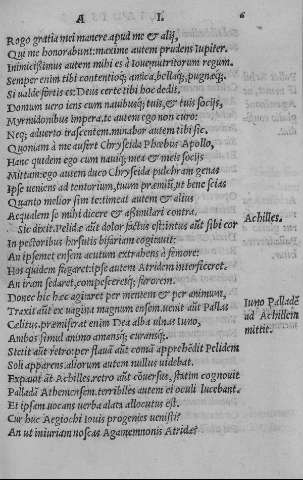 A I. 6
Rogo gratia mei manere apud me & alij,
Qui me honorabunt: maxime autem prudens Iupiter.
Inimicissimus autem mihi es à Ioue nutritorum regum.
Semper enim tibi contentioq; amica, bellaq; pugnæq;.
Si ualde fortis es: Deus certe tibi hoc dedit.
Domum uero iens cum nauibusq; tuis, & tuis socijs,
Myrmidonibus impera. te autem ego non curo:
Neq; aduerto irascentem. minabor autem tibi sic.
Quoniam à me aufert Chryseida Phœbus Apollo,
Hanc quidem ego cum nauiq; mea & meis socijs
Mittam: ego autem duco Chryseida pulchram genas
Ipse ueniens ad tentorium, tuum præmiũ, ut bene scias
Quanto melior sim te: timeat autem & alius
Aequalem se mihi dicere & assimilari contra.
Sic dixit. Pelidæ aũt dolor factus est: intus aũt sibi cor
Achilles.
In pectoribus hirsutis bifariam cogitauit:
An ipse ensem acutum extrahens à femore:
Hos quidem fugaret: ipse autem Atridem interficeret.
An iram sedaret, compesceretq; furorem.
Donec hic hæc agitaret per mentem & per animum,
Iuno Palladẽ
Traxit aũt ex uagina magnum ensem. uenit aũt Pallas
ad Achillem
Cælitus. præmiserat enim Dea alba ulnas Iuno,
mittit.
Ambos simul animo amansq; curansq;.
Stetit aũt retro: per flauã aũt comã apprehẽdit Pelidem
Soli apparens. aliorum autem nullus uidebat.
Expauit aũt Achilles. retro aũt cõuersus, statim cognouit
Palladẽ Atheniensem. terribiles autem ei oculi lucebant.
Et ipsam uocans uerba alata allocutus est.
Cur huc Aegiochi Iouis progenies uenisti?
An ut iniuriam noscas Agamemnonis Atridæ?